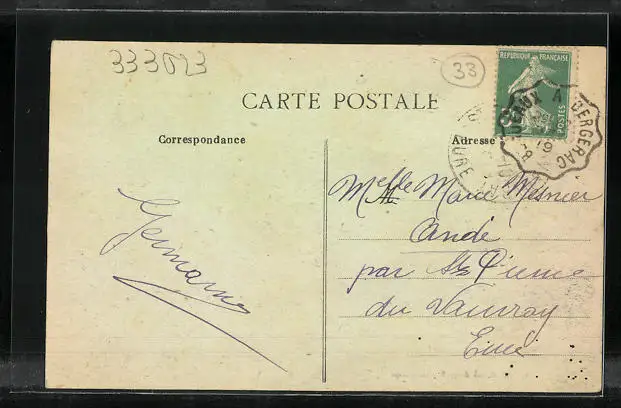 333023
33
REPUBLIQUE FRANÇAISE
POSTES
CARTE POSTALE
Correspondance
Adresse
A BERGERAC
Melle Marie Mesnier
Andé
par St Pierre
du Vauvray
Eure
Germaine